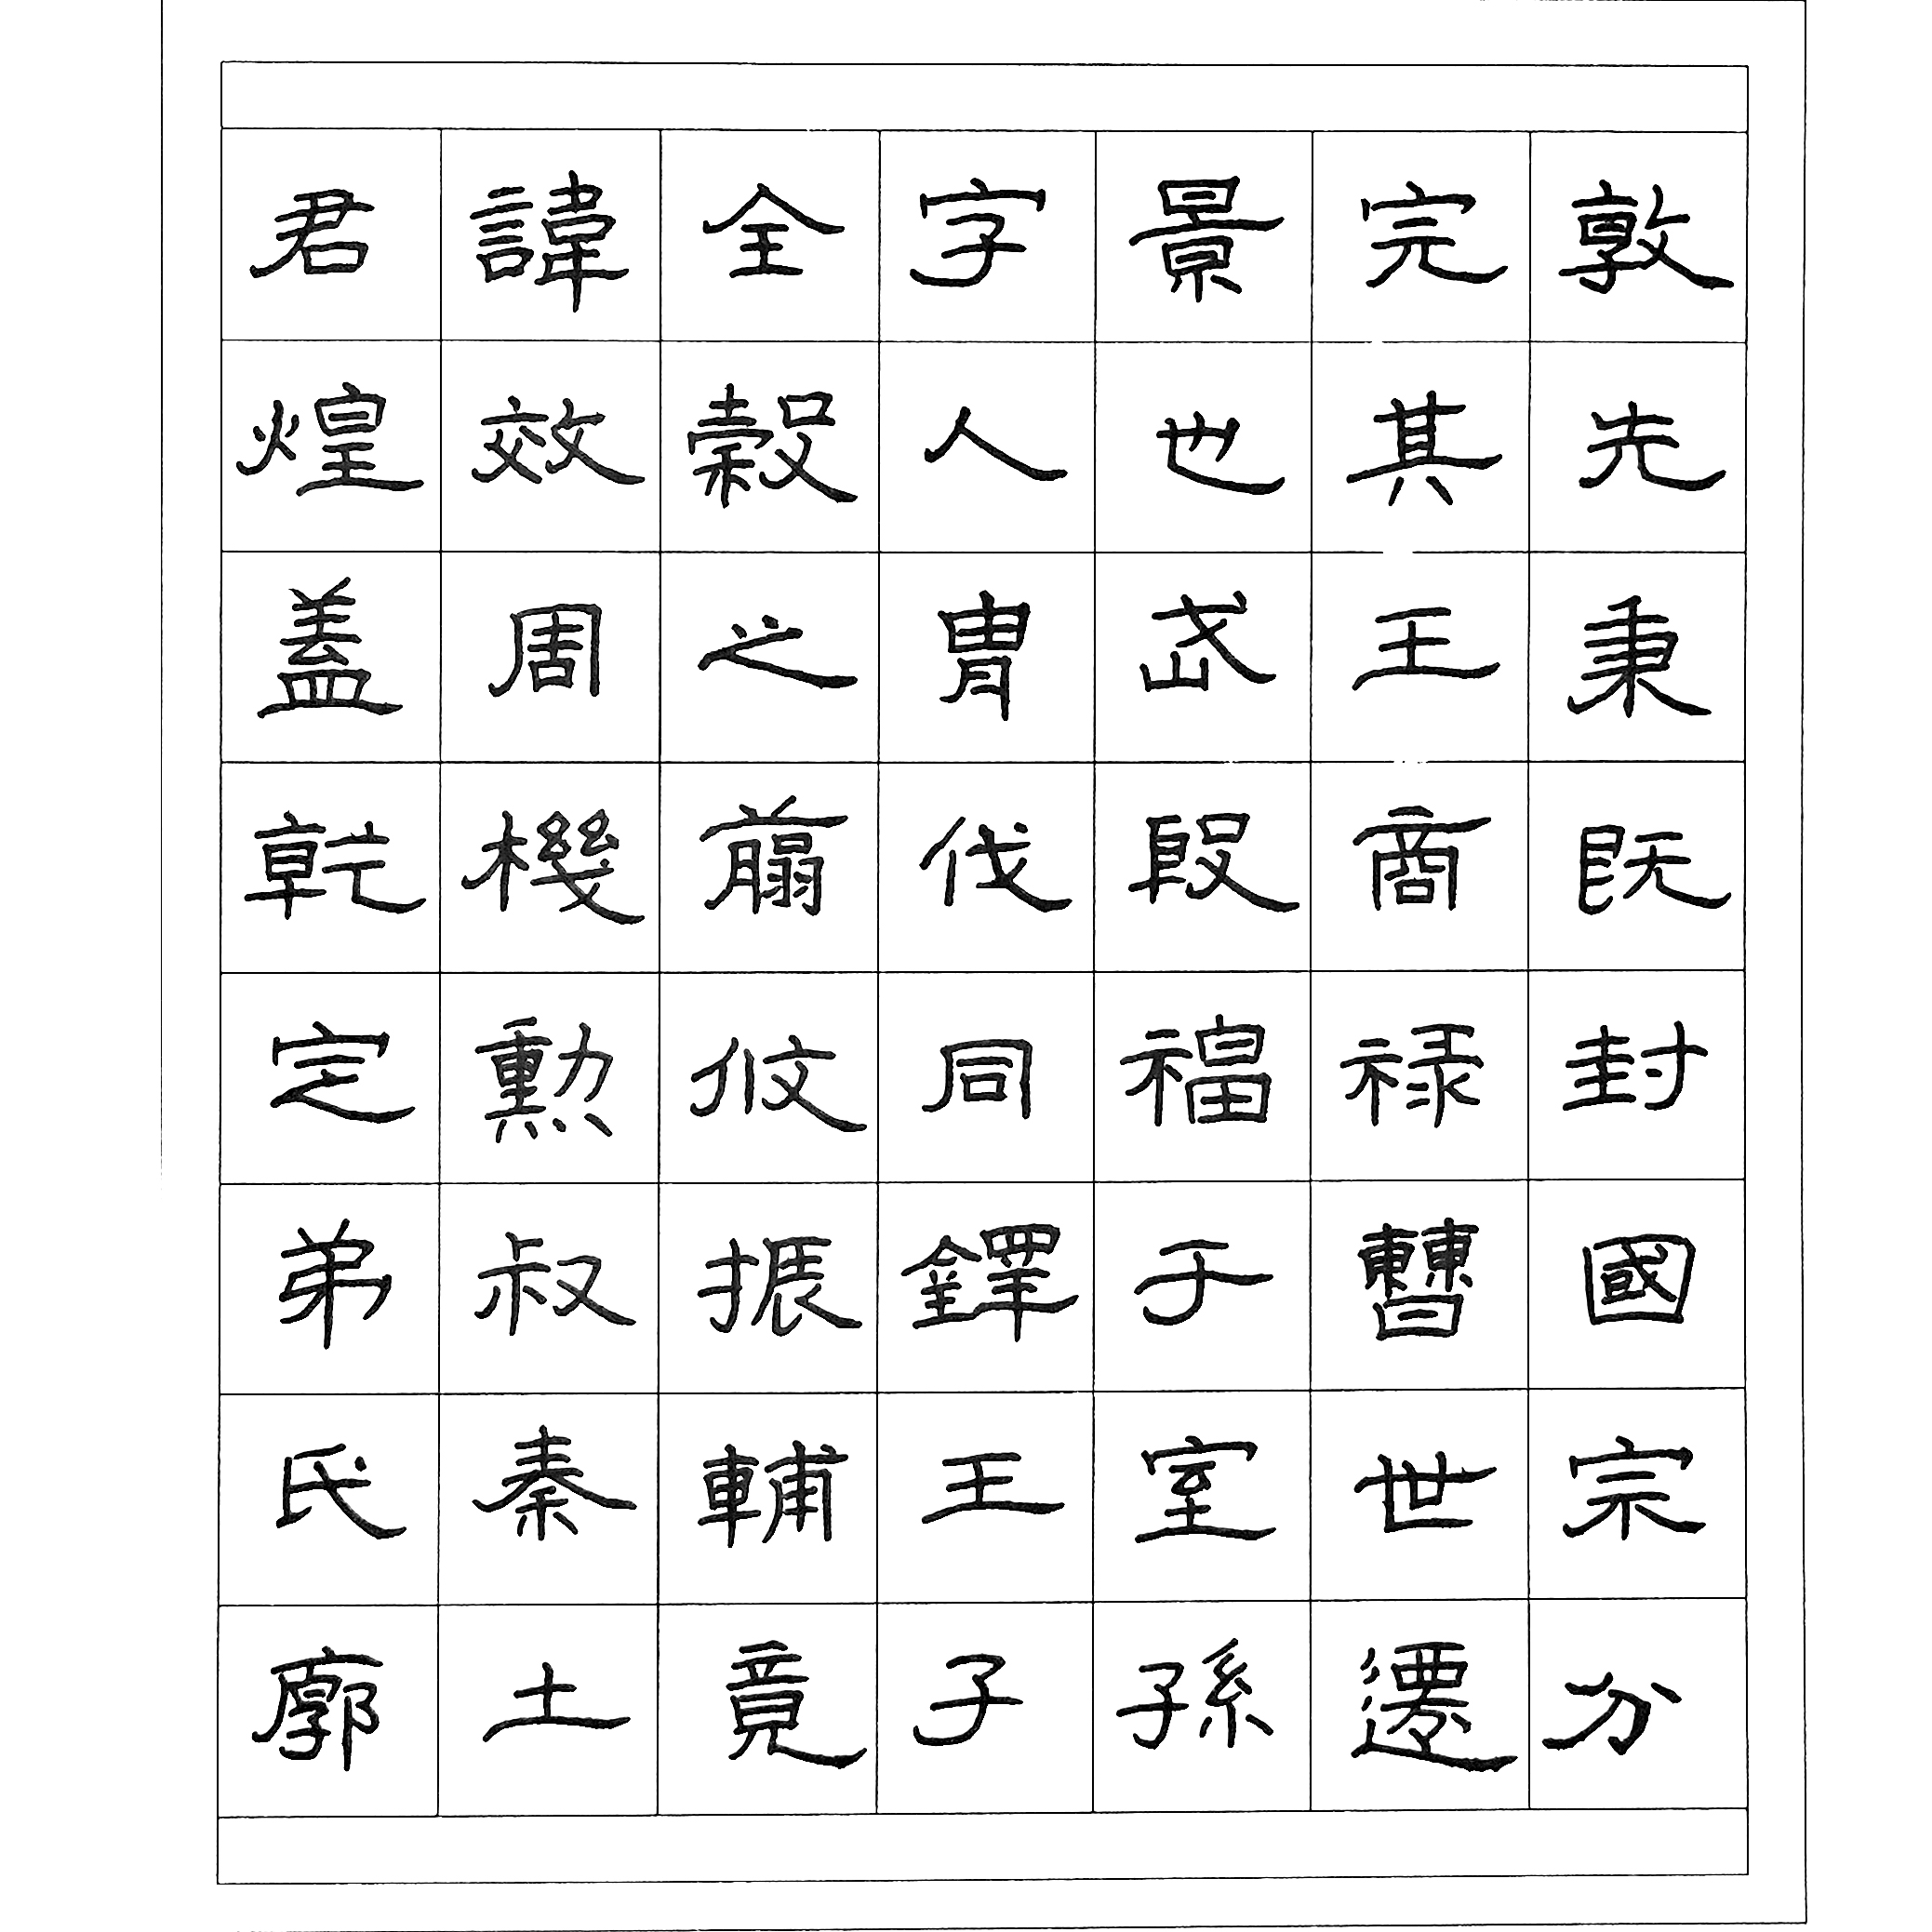 君諱全字景完敦
煌效穀人也其先
蓋周之胄武王秉
乾機翦伐殷商既
定爾勳福同攸祿
弟叔振鐸于曹國
氏秦輔王室世宗
廓土竟子孫遷分